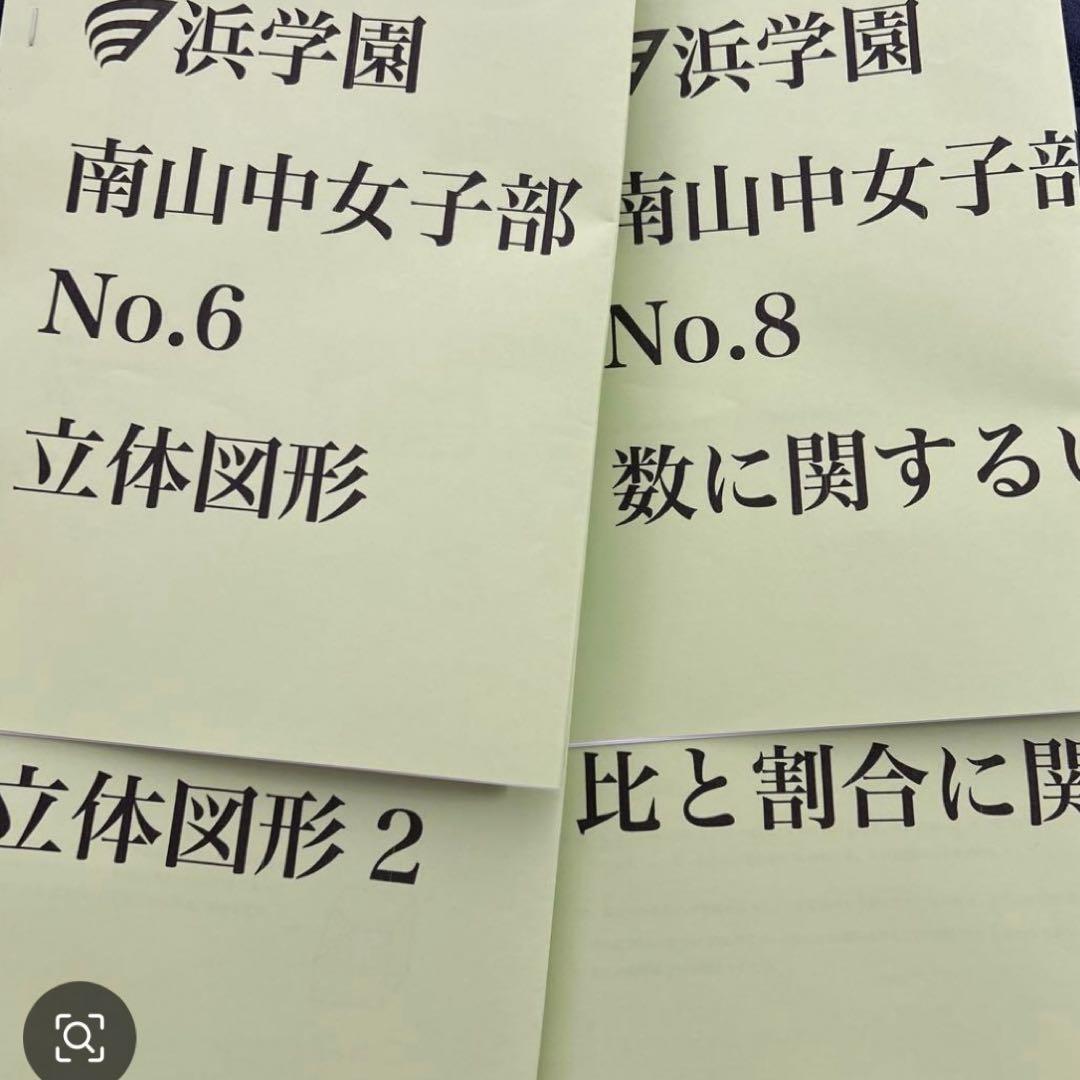 浜学園
南山中女子部
No.6
立体図形
浜学園
南山中女子部
No.8
数に関する
立体図形2
比と割合に関